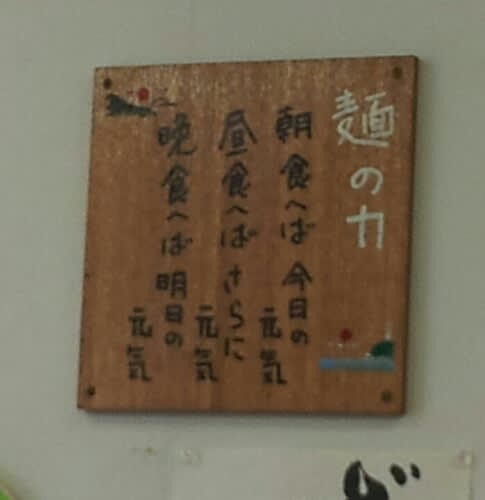 麺の力
朝食へば今日の
元気
昼食へばさらに
元気
晩食へば明日の
元気